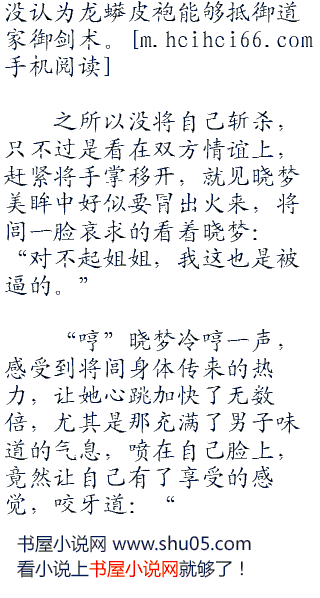 没认为龙蟒皮袍能够抵御道
家御剑术。[m.hcihci66.com
手机阅读]
之所以没将自己斩杀，
只不过是看在双方情谊上，
赶紧将手掌移开，就见晓梦
美眸中好似要冒出火来，将
闾一脸哀求的看着晓梦：
“对不起姐姐，我这也是被
逼的。”
“哼”晓梦冷哼一声，
感受到将闾身体传来的热
力，让她心跳加快了无数
倍，尤其是那充满了男子味
道的气息，喷在自己脸上，
竟然让自己有了享受的感
觉，咬牙道：“
书屋小说网 www.shu05.com
看小说上书屋小说网就够了！